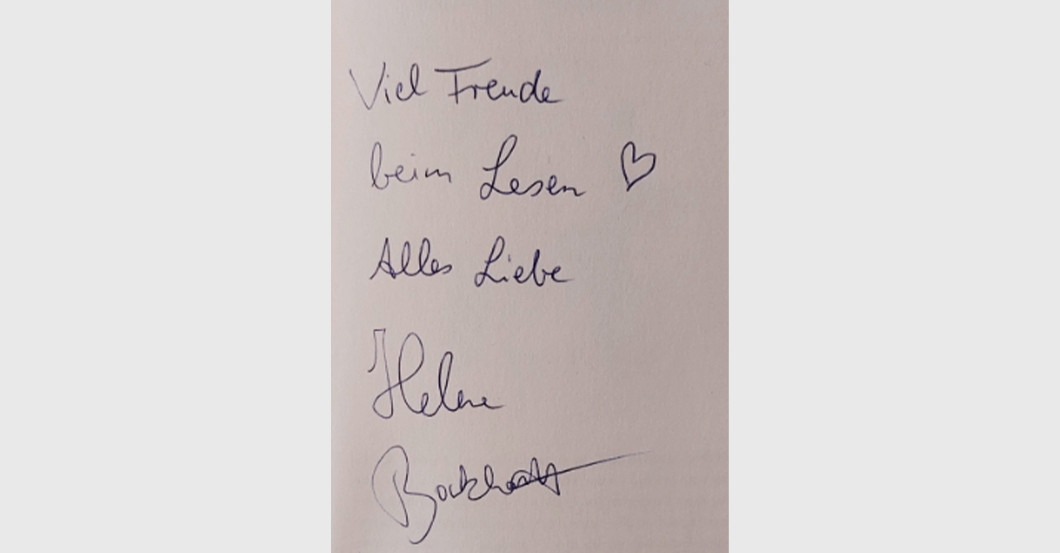 Viel Freude
beim Lesen ♡
Alles Liebe
Helene